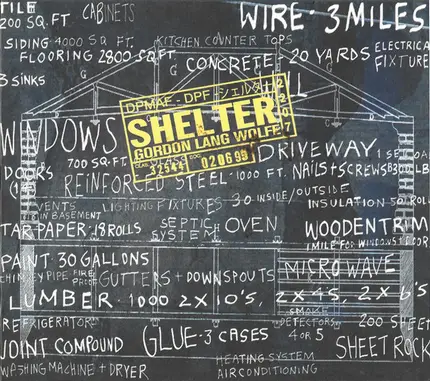 TILE
200 SQ. FT.
CABINETS
WIRE - 3 MILES
SIDING - 4000 SQ. FT.
KITCHEN COUNTER TOPS
ELECTRICAL
FIXTURE
FLOORING 2800 SQ. FT.
CONCRETE - 20 YARDS
3 SINKS
DPMAF - DPF - シェルター
SHELTER
GORDON LANG WOLFE
52544
020699
WINDOWS
700 SQ. FT.
DRIVEWAY
DOORS
REINFORCED STEEL - 1000 FT.
NAILS + SCREWS 300 LB
VENTS
IN BASEMENT
LIGHTING FIXTURES - 30 INSIDE/OUTSIDE
INSULATION 50 ROL
TAR PAPER - 18 ROLLS
SEPTIC
SYSTEM
OVEN
WOODEN TRIM
1 MILE FOR WINDOWS + DOOR
PAINT 30 GALLONS
CHIMNEY PIPE FIRE
PROOF
GUTTERS + DOWNSPOUTS
MICROWAVE
LUMBER 1000 2X10'S, 2X4S, 2X6'S
REFRIGERATOR
SMOKE
DETECTORS
4 OR 5
200 SHEET
SHEET ROCK
JOINT COMPOUND
GLUE - 3 CASES
WASHING MACHINE + DRYER
HEATING SYSTEM
AIRCONDITIONING